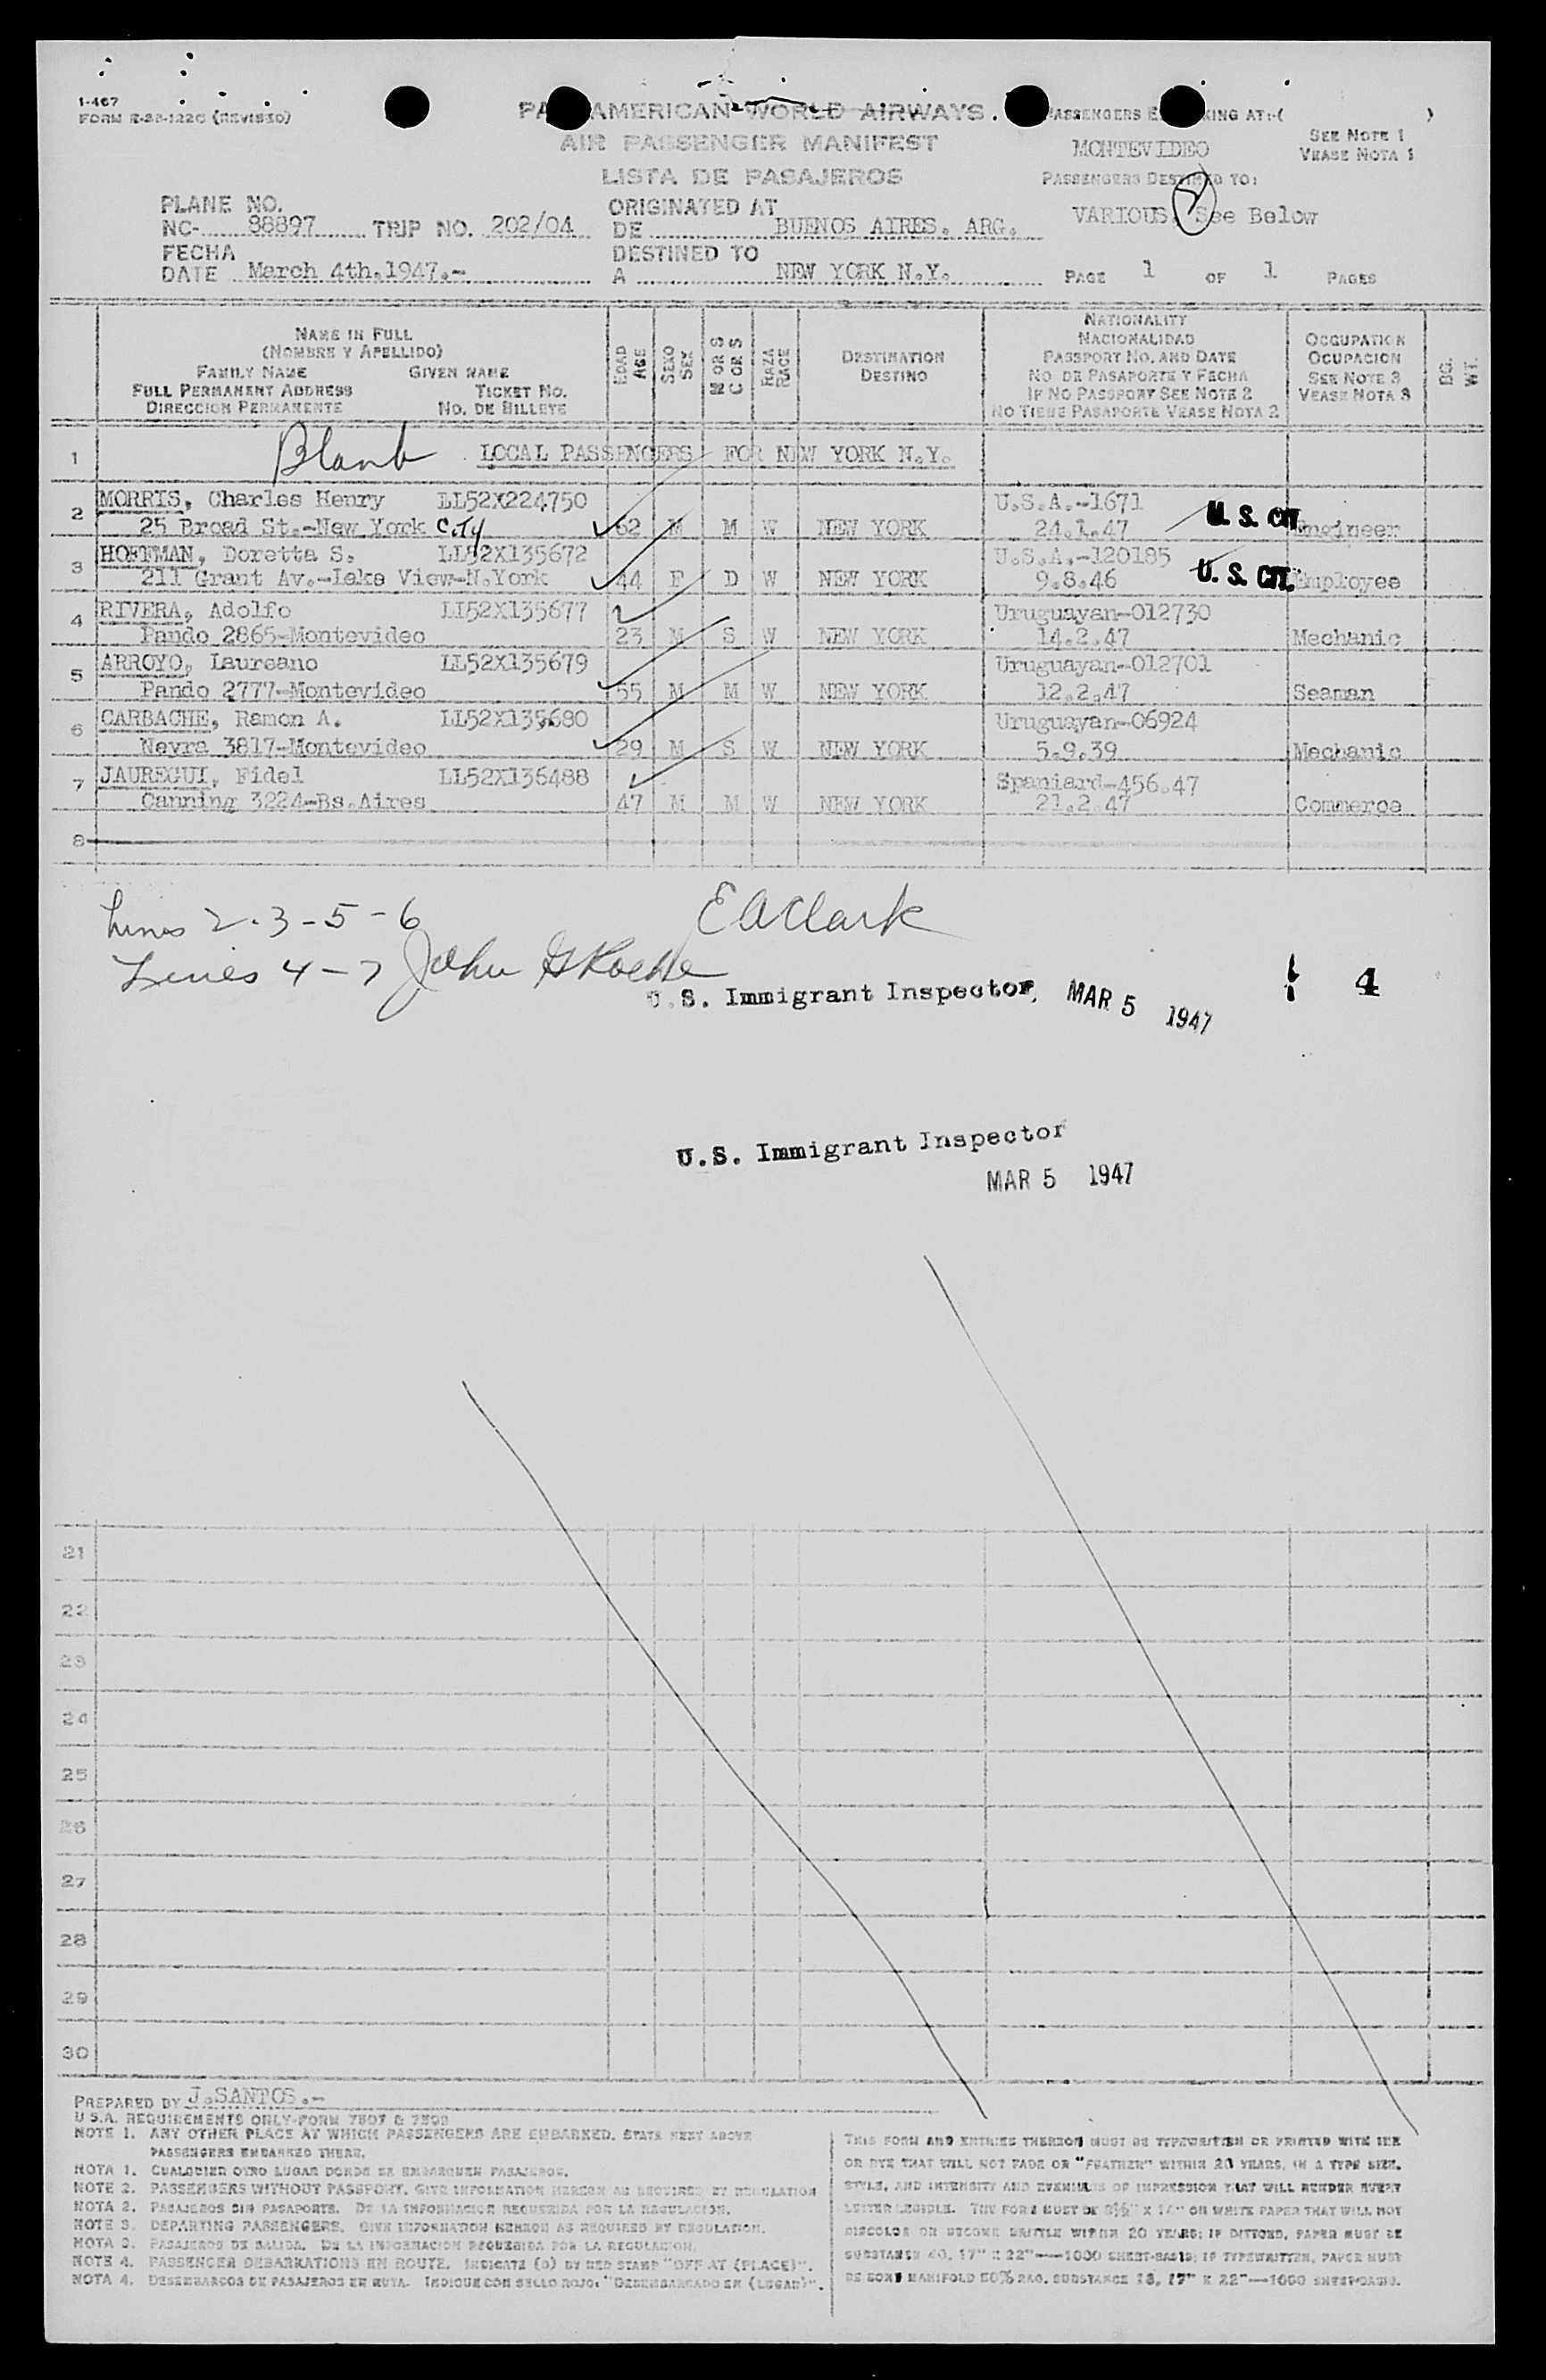 1-467
FORM R-SB-122C (REVISED)
PAN AMERICAN WORLD AIRWAYS.
AIR PASSENGER MANIFEST
LISTA DE PASAJEROS
PASSENGERS EMBARKING AT:-( )
MONTEVIDEO
SEE NOTE 1
VEASE NOTA 1
PASSENGERS DESTINED TO:
VARIOUS. See Below
PLANE NO.
NC- 88897 TRIP NO. 202/04
ORIGINATED AT
DE BUENOS AIRES. ARG.
FECHA
DATE March 4th.1947.-
DESTINED TO
A NEW YORK N.Y.
PAGE 1 OF 1 PAGES
NAME IN FULL
(NOMBRE Y APELLIDO)
FAMILY NAME GIVEN NAME
FULL PERMANENT ADDRESS TICKET NO.
DIRECCION PERMANENTE NO. DE BILLETE
EDAD AGE
SEXO SEX
M OR S C OR S
RAZA RACE
DESTINATION
DESTINO
NATIONALITY
NACIONALIDAD
PASSPORT NO. AND DATE
NO. DE PASAPORTE Y FECHA
IF NO PASSPORT SEE NOTE 2
NO TIENE PASAPORTE VEASE NOTA 2
OCCUPATION
OCUPACION
SEE NOTE 3
VEASE NOTA 3
BG. WT.
1 Blank LOCAL PASSENGERS FOR NEW YORK N.Y.
2 MORRIS, Charles Henry LL52X224750 U.S.A.-1671
25 Broad St.-New York City 62 M M W NEW YORK 24.1.47 U. S. CIT. Engineer
3 HOFFMAN, Doretta S. LL52X135672 U.S.A.-120185
211 Grant Av.-Lake View-N.York 44 F D W NEW YORK 9.8.46 U. S. CIT. Employee
4 RIVERA, Adolfo LL52X135677 Uruguayan-012730
Pando 2865-Montevideo 23 M S W NEW YORK 14.2.47 Mechanic
5 ARROYO, Laureano LL52X135679 Uruguayan-012701
Pando 2777-Montevideo 55 M M W NEW YORK 12.2.47 Seaman
6 CARBACHE, Ramon A. LL52X135680 Uruguayan-06924
Neyra 3817-Montevideo 29 M S W NEW YORK 5.9.39 Mechanic
7 JAUREGUI, Fidel LL52X136488 Spaniard-456.47
Canning 3224-Bs.Aires 47 M M W NEW YORK 21.2.47 Commerce
8
Lines 2-3-5-6 E A Clark
Lines 4-7 John G Roche
U.S. Immigrant Inspector, MAR 5 1947
4
U.S. Immigrant Inspector
MAR 5 1947
21
22
23
24
25
26
27
28
29
30
PREPARED BY J.SANTOS.-
U.S.A. REQUIREMENTS ONLY-FORM 7507 & 7509
NOTE 1. ANY OTHER PLACE AT WHICH PASSENGERS ARE EMBARKED. STATE NEXT ABOVE
PASSENGERS EMBARKED THERE.
NOTA 1. CUALQUIER OTRO LUGAR DONDE SE EMBARQUEN PASAJEROS.
NOTE 2. PASSENGERS WITHOUT PASSPORT. GIVE INFORMATION HEREON AS REQUIRED BY REGULATION
NOTA 2. PASAJEROS SIN PASAPORTE. DE LA INFORMACION REQUERIDA POR LA REGULACION.
NOTE 3. DEPARTING PASSENGERS. GIVE INFORMATION HEREON AS REQUIRED BY REGULATION.
NOTA 3. PASAJEROS DE SALIDA. DE LA INFORMACION REQUERIDA POR LA REGULACION.
NOTE 4. PASSENGER DEBARKATIONS EN ROUTE. INDICATE (D) BY RED STAMP "OFF AT (PLACE)".
NOTA 4. DESEMBARCOS DE PASAJEROS EN RUTA. INDIQUE CON SELLO ROJO: "DESEMBARCADO EN (LUGAR)".
THIS FORM AND ENTRIES THEREON MUST BE TYPEWRITTEN OR PRINTED WITH INK
OR DYE THAT WILL NOT FADE OR "FEATHER" WITHIN 20 YEARS, IN A TYPE SIZE,
STYLE, AND INTENSITY AND EVENNESS OF IMPRESSION THAT WILL RENDER EVERY
LETTER LEGIBLE. THE FORM MUST BE 8½" X 14" ON WHITE PAPER THAT WILL NOT
DISCOLOR OR BECOME BRITTLE WITHIN 20 YEARS; IF DITTOED, PAPER MUST BE
SUBSTANCE 40, 17" X 22"—1000 SHEET-BASIS; IF TYPEWRITTEN, PAPER MUST
BE BOND MANIFOLD 50% RAG. SUBSTANCE 18, 17" X 22"—1000 SHEET-BASIS.